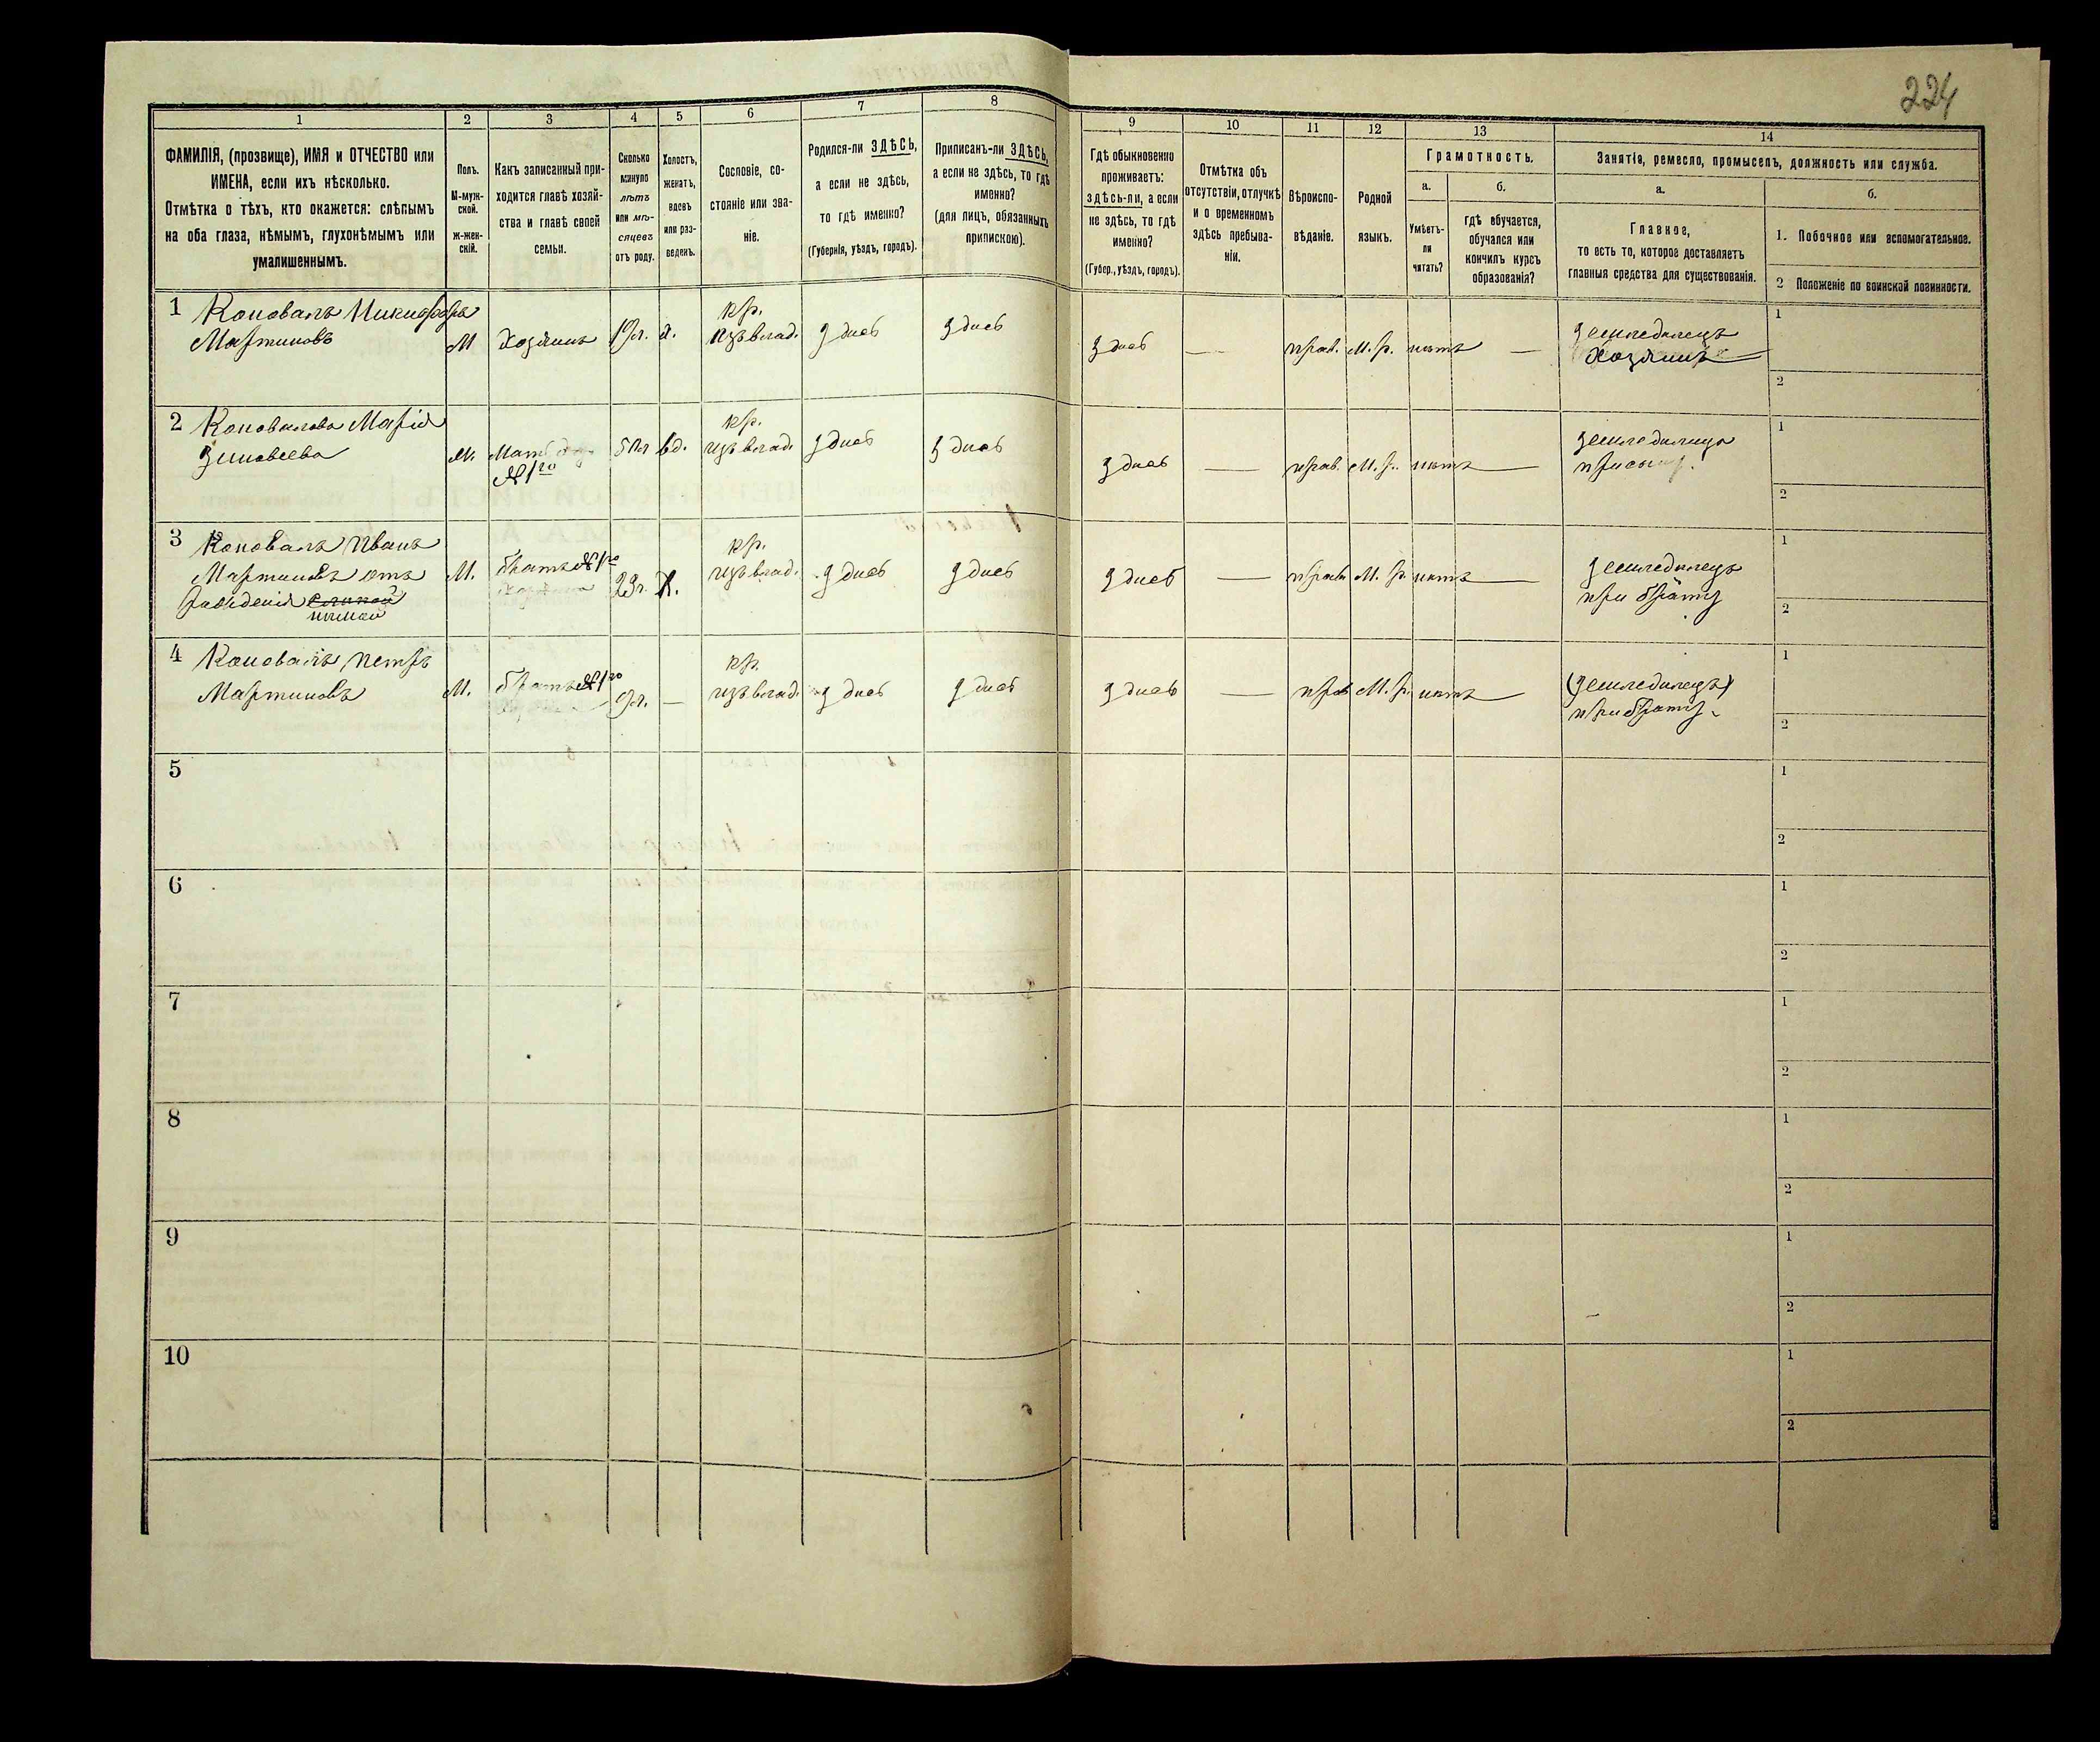 224
1 2 3 4 5 6 7 8 9 10 11 12 13 14
ФАМИЛІЯ, (прозвище), ИМЯ и ОТЧЕСТВО или
ИМЕНА, если ихъ нѣсколько.
Отмѣтка о тѣхъ, кто окажется: слѣпымъ
на оба глаза, нѣмымъ, глухонѣмымъ или
умалишеннымъ.
Полъ.
М-муж-
ской.
Ж-жен-
скій.
Какъ записанный при-
ходится главѣ хозяй-
ства и главѣ своей
семьи.
Сколько
минуло
лѣтъ
или мѣ-
сяцевъ
отъ роду.
Холостъ,
женатъ,
вдовъ
или раз-
веденъ.
Сословіе, со-
стояніе или зва-
ніе.
Родился-ли ЗДѢСЬ,
а если не здѣсь,
то гдѣ именно?
(Губернія, уѣздъ, городъ).
Приписанъ-ли ЗДѢСЬ,
а если не здѣсь, то гдѣ
именно?
(для лицъ, обязанныхъ
припискою).
Гдѣ обыкновенно
проживаетъ:
здѣсь-ли, а если
не здѣсь, то гдѣ
именно?
(Губер., уѣздъ, городъ).
Отмѣтка объ
отсутствіи, отлучкѣ
и о временномъ
здѣсь пребыва-
ніи.
Вѣроиспо-
вѣданіе.
Родной
языкъ.
Грамотность.
а.
Умѣетъ-
ли
читать?
б.
гдѣ обучается,
обучался или
кончилъ курсъ
образованія?
Занятіе, ремесло, промыселъ, должность или служба.
а.
Главное,
то есть то, которое доставляетъ
главныя средства для существованія.
б.
1. Побочное или вспомогательное.
2 Положеніе по воинской повинности.
1 Коновалъ Никифоръ
Мартиновъ
М
Хозяинъ
19л.
х.
кр.
изъ влад.
здѣсь
здѣсь
здѣсь
—
прав.
М. р.
нѣтъ
—
земледѣлецъ
Хозяинъ
1
2
2 Коновалова Марія
Зиновеева
Мать
№ 1го
вд.
кр.
изъ влад.
здѣсь
здѣсь
здѣсь
—
прав.
М. р.
нѣтъ
—
земледѣлица
1
2
3 Коновалъ Иванъ
Мартиновъ отъ
нѣмой
М.
братъ № 1го
23г.
х.
кр.
изъ влад.
здѣсь
здѣсь
здѣсь
—
прав.
М. р.
нѣтъ
—
земледѣлецъ
при братѣ
1
2
4 Коновалъ Петръ
Мартиновъ
М.
братъ № 1го
9л.
—
кр.
изъ влад.
здѣсь
здѣсь
здѣсь
—
прав
М. р.
нѣтъ
—
(земледѣлецъ)
при братѣ
1
2
5
1
2
6
1
2
7
1
2
8
1
2
9
1
2
10
1
2